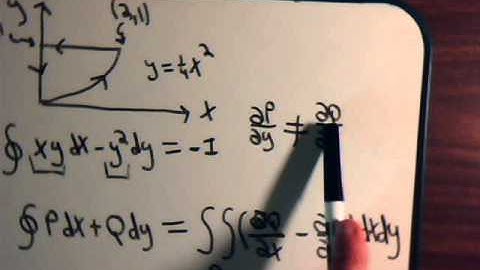 y
(2,1)
y=¼x²
x
∮ xy dx - y² dy = -I
∂P/∂y ≠ ∂Q/
∮ Pdx + Qdy = ∬(∂Q/∂x - dxdy